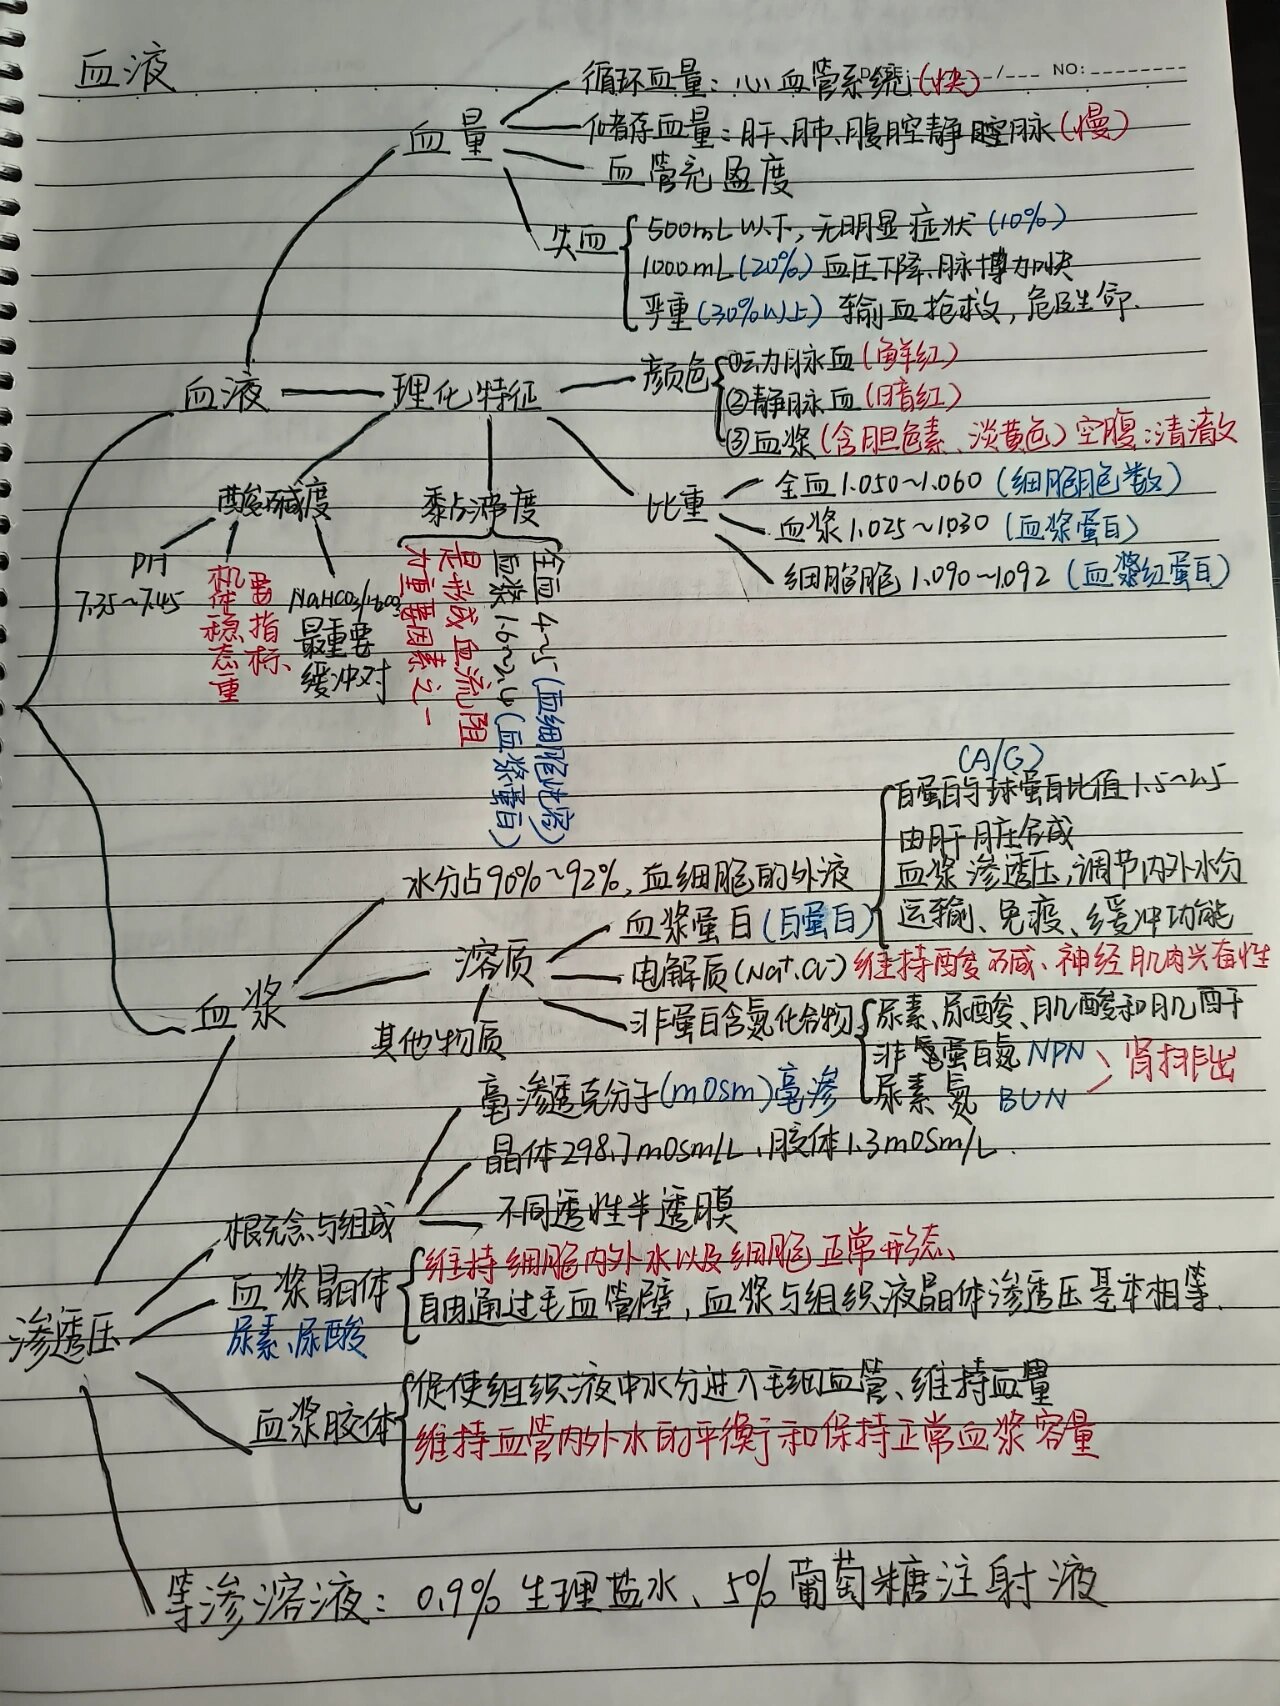 血液
NO:
循环血量：心血管系统(快)
血量
储存血量：肝、肺、腹腔静脉(慢)
血管充盈度
失血
500mL以下,无明显症状(10%)
1000mL(20%)血压下降、脉搏加快
严重(30%以上)输血抢救,危及生命.
血液
理化特征
颜色
①动脉血(鲜红)
②静脉血(暗红)
③血浆(含胆色素、淡黄色)空腹:清澈
酸碱度
黏滞度
比重
全血1.050~1.060(细胞数)
血浆1.025~1.030(血浆蛋白)
细胞1.090~1.092(血红蛋白)
PH
7.35~7.45
机体稳态重
要指标、
NaHCO₃/H₂CO₃
最重要
缓冲对
全血4~5(血细胞比容)
血浆1.6~2.4(血浆蛋白)
是形成血流阻
力重要因素之一
(A/G)
白蛋白与球蛋白比值1.5~2.5
由肝脏合成
血浆渗透压,调节内外水分
运输、免疫、缓冲功能
水分占90%~92%,血细胞的外液
血浆蛋白(白蛋白)
溶质
电解质(Na⁺.Cl⁻)维持酸碱、神经肌肉兴奋性
血浆
其他物质
非蛋白含氮化合物
尿素、尿酸、肌酸和肌酐
非蛋白氮NPN
尿素氮 BUN
肾排出
毫渗透克分子(mOsm)毫渗
晶体298.7mOsm/L、胶体1.3mOsm/L.
概念与组成
不同透性半透膜
血浆晶体
尿素、尿酸
维持细胞内外水以及细胞正常形态、
自由通过毛血管壁,血浆与组织液晶体渗透压基本相等.
渗透压
血浆胶体
促使组织液中水分进入毛细血管、维持血量
维持血管内外水的平衡和保持正常血浆容量
等渗溶液:0.9%生理盐水、5%葡萄糖注射液